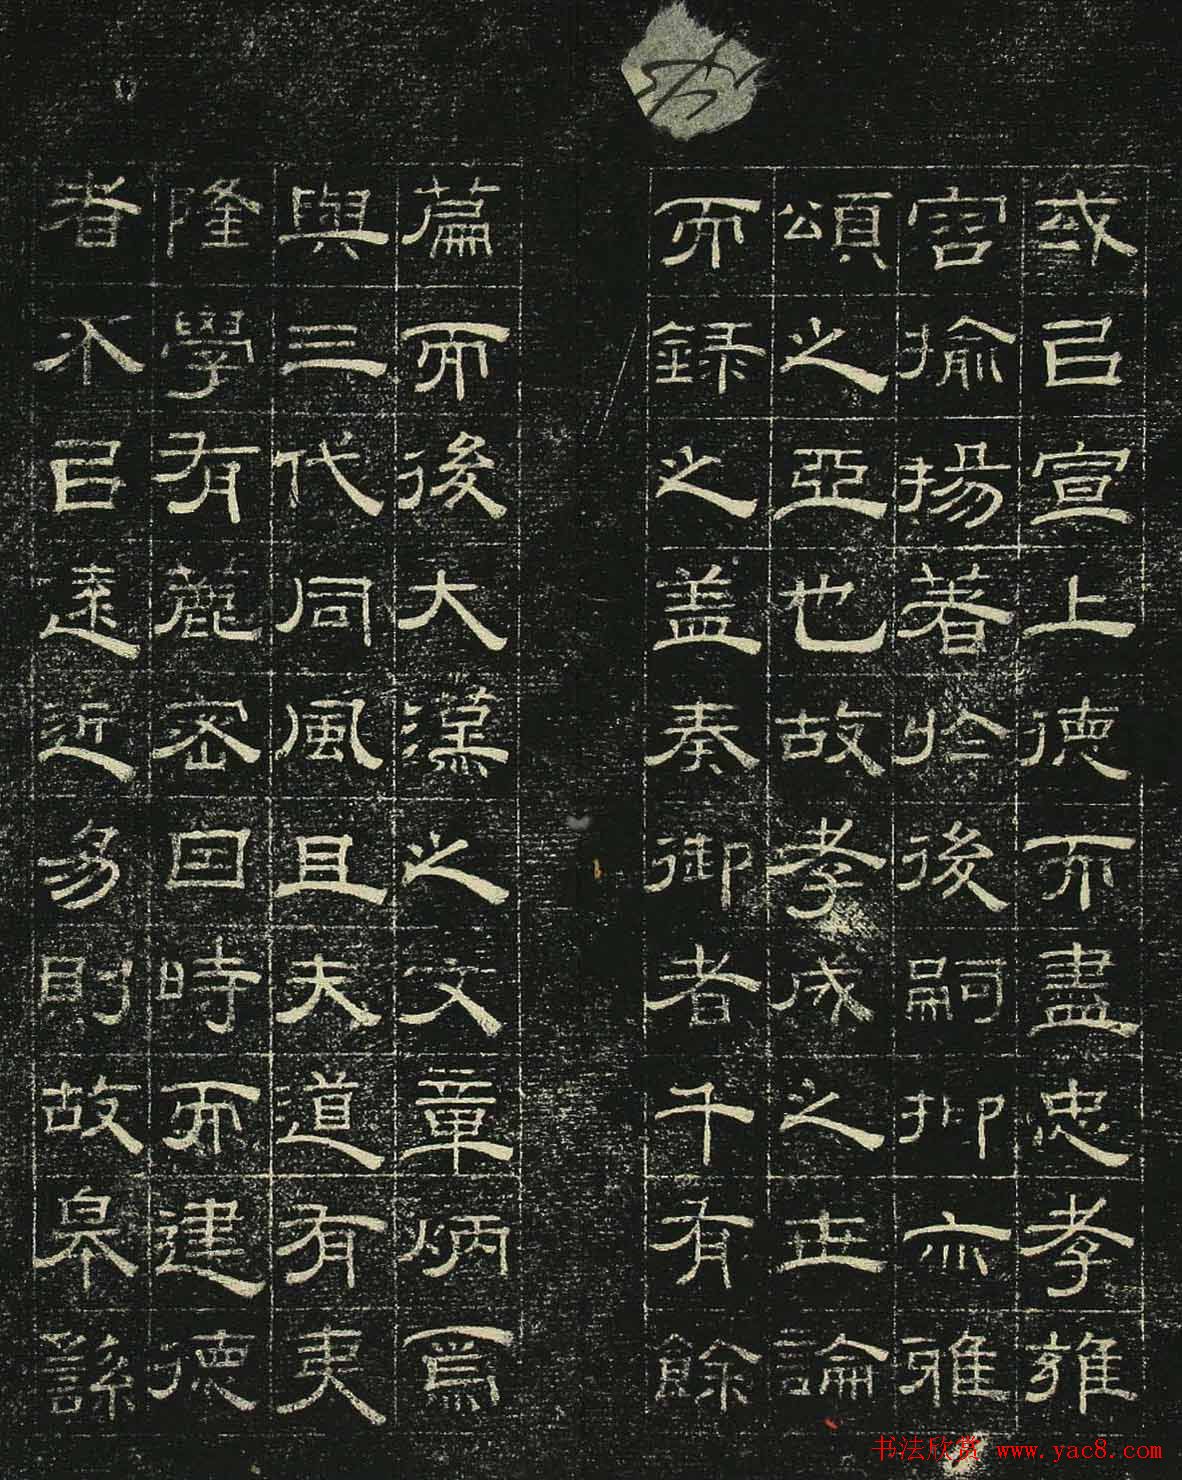 或㠯宣上德而盡忠孝雍
容揄揚著於後嗣抑亦雅
頌之亞也故孝成之世論
而錄之蓋奏御者千有餘
篇而後大漢之文章炳焉
與三代同風且夫道有夷
隆學有麤密因時而建德
者不㠯遠近易則故皋繇
书法欣赏 www.yac8.com